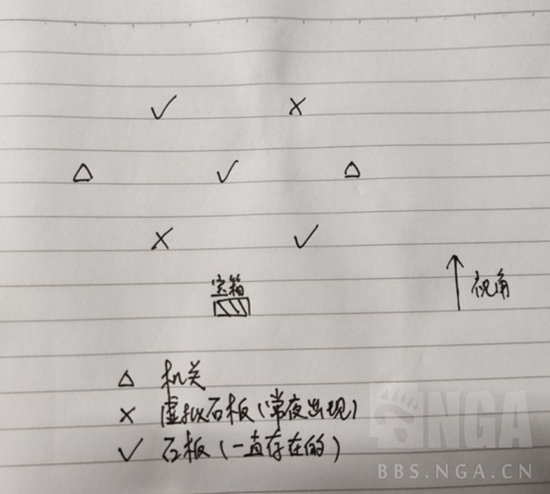 ✓ ×
△ ✓ △
× ✓
宝箱
视角
△ 机关
× 虚拟石板(常夜出现)
✓ 石板(一直存在的)
NGA
BBS.NGA.CN